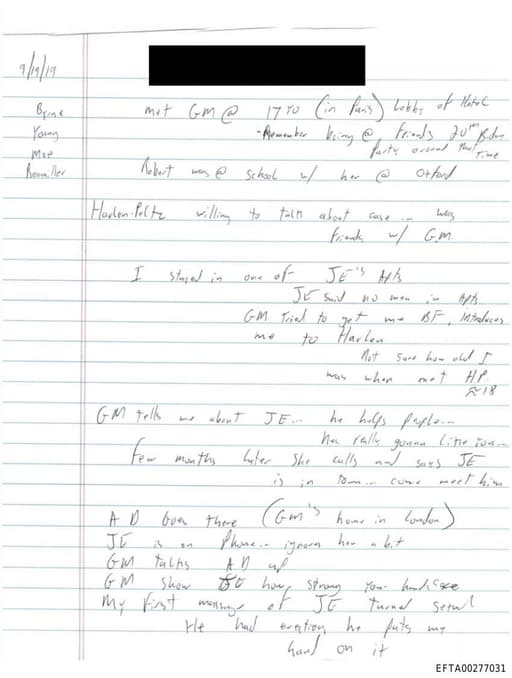 9/19/19
Byrne
Young
Moe
Rossmiller
met GM @ 17 YO (in Paris) Lobby of Hotel
- Remember being @ friends 20th Bday
Party around that time
Robert was @ school w/ her @ Oxford
Harlen-Peltz willing to talk about case... was
friends w/ G.M.
I stayed in one of JE's Apts
JE said no men in Apts
GM Tried to get me BF, Introduces
me to Harlen
Not sure how old I
was when met HP
≈18
GM tells me about JE... he helps people...
He's really gonna like you...
Few months later she calls and says JE
is in town... come meet him
AD Goes there (GM's home in London)
JE is on Phone... ignores her a bit
GM talks AD up
GM show JE how strong your hands are
My First massage of JE turned sexual
He had erection he puts my
hand on it
EFTA00277031